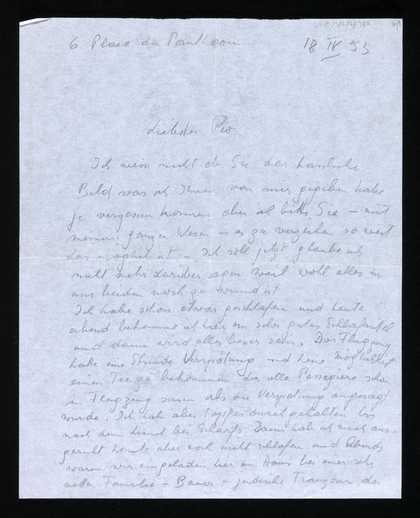 6 Place du Panthéon 18 IV 53
Liebster Pio
Ich weiss nicht ob Sie das hässliche
Bild was ich Ihnen von mir gegeben habe
je vergessen können aber ich bitte Sie – mit
meinem ganzen Wesen es zu verzeihen so weit
das möglich ist – Ich soll jetzt glaube ich
nicht mehr darüber sagen weil wohl alles in
uns beiden noch zu wund ist
Ich habe schon etwas geschlafen und heute
abend bekomme ich hier ein sehr gutes Schlafmittel
und dann wird alles besser sein. Das Flugzeug
hatte eine Stunde Verspätung und keine Möglichkeit
einen Tee zu bekommen da alle Passagiere schon
im Flugzeug waren als die Verspätung angesagt
wurde. Ich habe aber tapfer durchgehalten bis
nach dem
ruht konnte aber noch nicht schlafen und Abends
waren wir eingeladen hier im Haus bei einer sehr
netten Familie – Bauer – jüdische Franzosen die